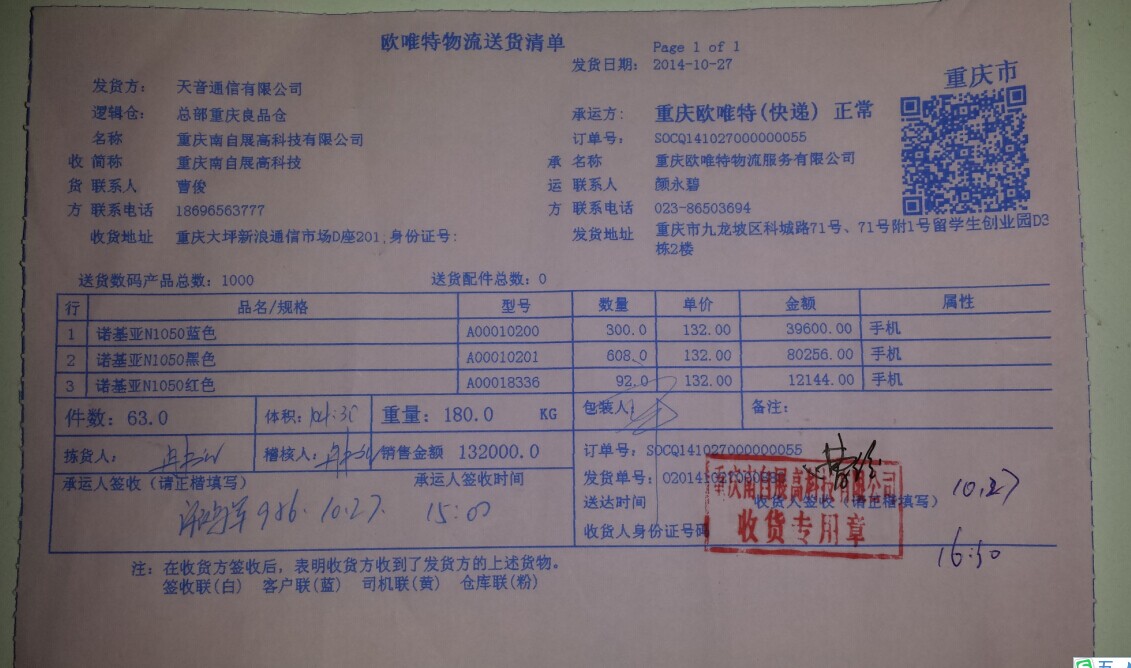 欧唯特物流送货清单
Page 1 of 1
发货日期: 2014-10-27
重庆市
发货方: 天音通信有限公司
逻辑仓: 总部重庆良品仓
承运方: 重庆欧唯特(快递) 正常
名称 重庆南自展高科技有限公司
订单号: SOCQ141027000000055
收 简称 重庆南自展高科技
承 名称 重庆欧唯特物流服务有限公司
货 联系人 曹俊
运 联系人 颜永碧
方 联系电话 18696563777
方 联系电话 023-86503694
收货地址 重庆大坪新浪通信市场D座201,身份证号:
发货地址 重庆市九龙坡区科城路71号、71号附1号留学生创业园D3
栋2楼
送货数码产品总数: 1000 送货配件总数: 0
行 品名/规格 型号 数量 单价 金额 属性
1 诺基亚N1050蓝色 A00010200 300.0 132.00 39600.00 手机
2 诺基亚N1050黑色 A00010201 608.0 132.00 80256.00 手机
3 诺基亚N1050红色 A00018336 92.0 132.00 12144.00 手机
件数: 63.0 体积: 重量: 180.0 KG 包装人: 备注:
拣货人: 稽核人: 销售金额 132000.0
订单号: SOCQ141027000000055
承运人签收 (请正楷填写) 承运人签收时间
发货单号:
送达时间 收货人签收 (请正楷填写)
收货人身份证号码
986. 10.27. 15:00
10.27
16:30
重庆南自展高科技有限公司
收货专用章
注: 在收货方签收后, 表明收货方收到了发货方的上述货物。
签收联(白) 客户联(蓝) 司机联(黄) 仓库联(粉)